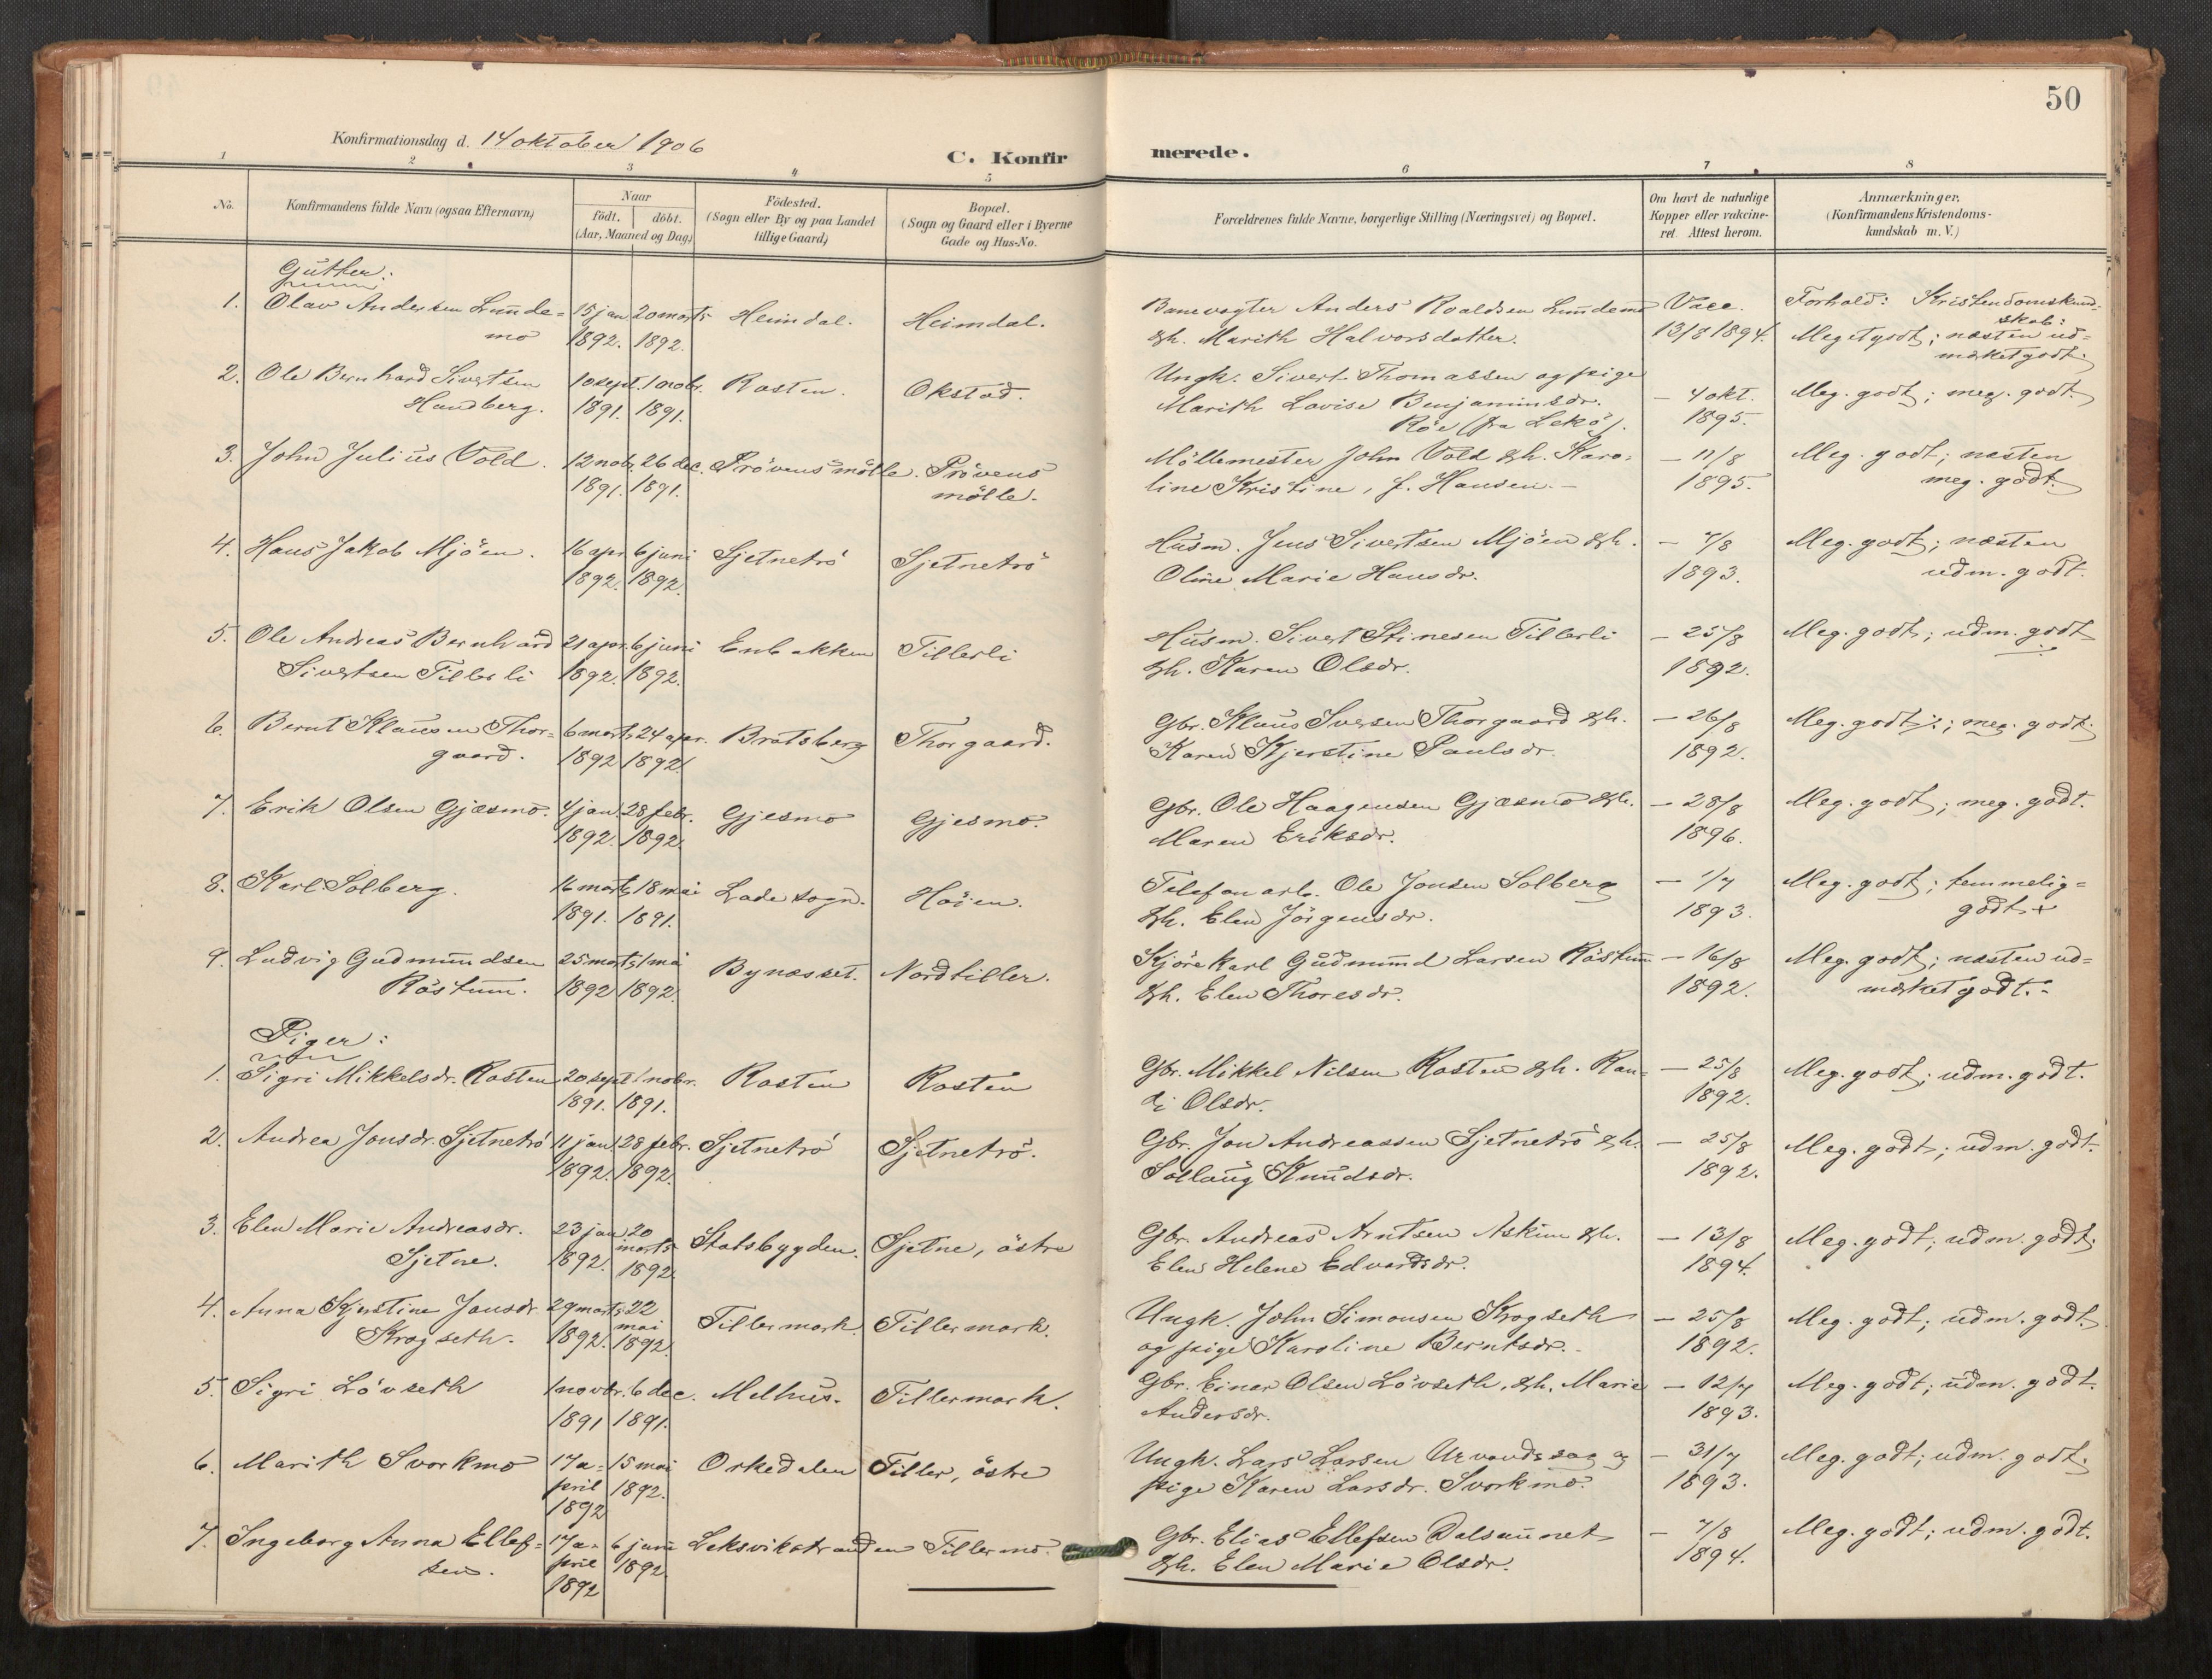 50
Konfirmationsdag d. 14 oktober 1906
C. Konfirmerede.
1 2 3 4 5 6 7 8
No.
Konfirmandens fulde Navn (ogsaa Efternavn)
Naar
født. døbt.
(Aar, Maaned og Dag)
Fødested.
(Sogn eller By og paa Landet
tillige Gaard)
Bopæl.
(Sogn og Gaard eller i Byerne
Gade og Hus-No.
Forældrenes fulde Navne, borgerlige Stilling (Næringsvei) og Bopæl.
Om havt de naturlige
Kopper eller vakcine-
ret. Attest herom.
Anmærkninger,
(Konfirmandens Kristendoms-
kundskab m. V.)
Gutter:
1. Olav Andersen Lunde= 15 jan 20 marts Heimdal. Heimdal. Banevogter Anders Roaldsen Lundemo Vacc. Forhold: Kristendomskund-
skab:
mo 1892. 1892. & h. Marith Halvorsdatter. 13/8 1894. Meget godt; næsten ud=
mærket godt.
2. Ole Bernhard Sivertsen 10 sept. 1 nobr. Rosten. Okstad. Ungk. Sivert Thomassen og pige — 4 okt. Meg. godt; meg. godt.
Handberg. 1891. 1891. Marith Lovise Benjaminsdr. 1895.
Röe (fra Lekö).
3. John Julius Vold. 12 nobr. 26 dec. Prövens mölle. Prövens Möllemester John Vold & h. Karo= — 11/8 Meg. godt; næsten
1891. 1891. mölle. line Kristine, f. Hansen. — 1895. meg. godt.
4. Hans Jakob Mjöen. 16 apr. 6 juni Sjetnetrö Sjetnetrö Husm. Jens Sivertsen Mjöen & h. — 7/8 Meg. godt; næsten
1892. 1892. Oline Marie Hansdr. 1893. udm. godt.
5. Ole Andreas Bernhard 21 apr. 6 juni Enbakken Tillerli Husm. Sivert Stinesen Tillerli — 25/8 Meg. godt; udm. godt
Sivertsen Tillerli 1892. 1892. & h. Karen Olsdr. 1892.
6. Bernt Klausen Thor= 6 marts 24 apr. Bratsberg Thorgaard. Gbr. Klaus Iversen Thorgaard & h. — 26/8 Meg. godt; meg. godt.
gaard. 1892 1892. Karen Kjerstine Paulsdr. 1892.
7. Erik Olsen Gjæsmo. 4 jan. 28 febr. Gjesmo Gjesmo. Gbr. Ole Haagensen Gjæsmo & h. — 28/8 Meg. godt; meg. godt.
1892. 1892. Maren Eriksdr. 1896.
8. Karl Solberg. 16 marts 18 mai Lade sogn. Höien. Telefonarb. Ole Jonsen Solberg — 1/7 Meg. godt; temmelig=
1891. 1891. & h. Elen Jörgensdr. 1893. godt +
9. Ludvig Gudmundsen 25 marts 1 mai Bynæsset. Nordtiller. Kjörekarl Gudmund Larsen Röstum — 16/8 Meg. godt; næsten ud=
Röstum. 1892 1892. & h. Elen Thoresdr. 1892. mærket godt.
Piger:
1. Sigri Mikkelsdr. Rosten 20 sept. 1 nobr. Rosten Rosten Gbr. Mikkel Nilsen Rosten & h. Ran= — 25/8 Meg. godt; udm. godt.
1891. 1891. di Olsdr. 1892.
2. Andrea Jonsdr. Sjetnetrö 11 jan. 28 febr. Sjetnetrö Sjetnetrö. Gbr. Jon Andreassen Sjetnetrö & h. — 25/8 Meg. godt; udm. godt.
1892. 1892. Sollaug Knudsdr. 1892.
3. Elen Marie Andreasdr. 23 jan 20 Statsbygden. Sjetne, östre Gbr. Andreas Arntsen Askim & h. — 13/8 Meg. godt; udm. godt.
Sjetne. 1892. marts 1892 Elen Helene Edvardsdr. 1894.
4. Anna Kjerstine Jonsdr. 29 marts 22 Tillermark. Tillermark. Ungk. John Simonsen Krogseth — 25/8 Meg. godt; udm. godt.
Krogseth. 1892. mai 1892. og pige Karoline Berntsdr. 1892.
5. Sigri Lövseth 1 novbr. 6 dec. Melhus. Tillermark. Gbr. Einar Olsen Lövseth, & h. Marie — 12/7 Meg. godt; udm. godt.
1891 1891. Andersdr. 1893.
6. Marith Svorkmo 17 a= 15 mai Orkedalen Tiller, östre Ungk. Lars Larsen Urvandssag og — 31/7 Meg. godt; udm. godt.
pril 1892. pige Karen Larsdr. Svorkmo. 1893.
1892
7. Ingeborg Anna Ellef= 17 a= 6 juni Leksvikstranden Tillermo. Gbr. Elias Ellefsen Dalsaunet — 7/8 Meg. godt; udm. godt.
sen. pril 1892 & h. Elen Marie Olsdr. 1894.
1892